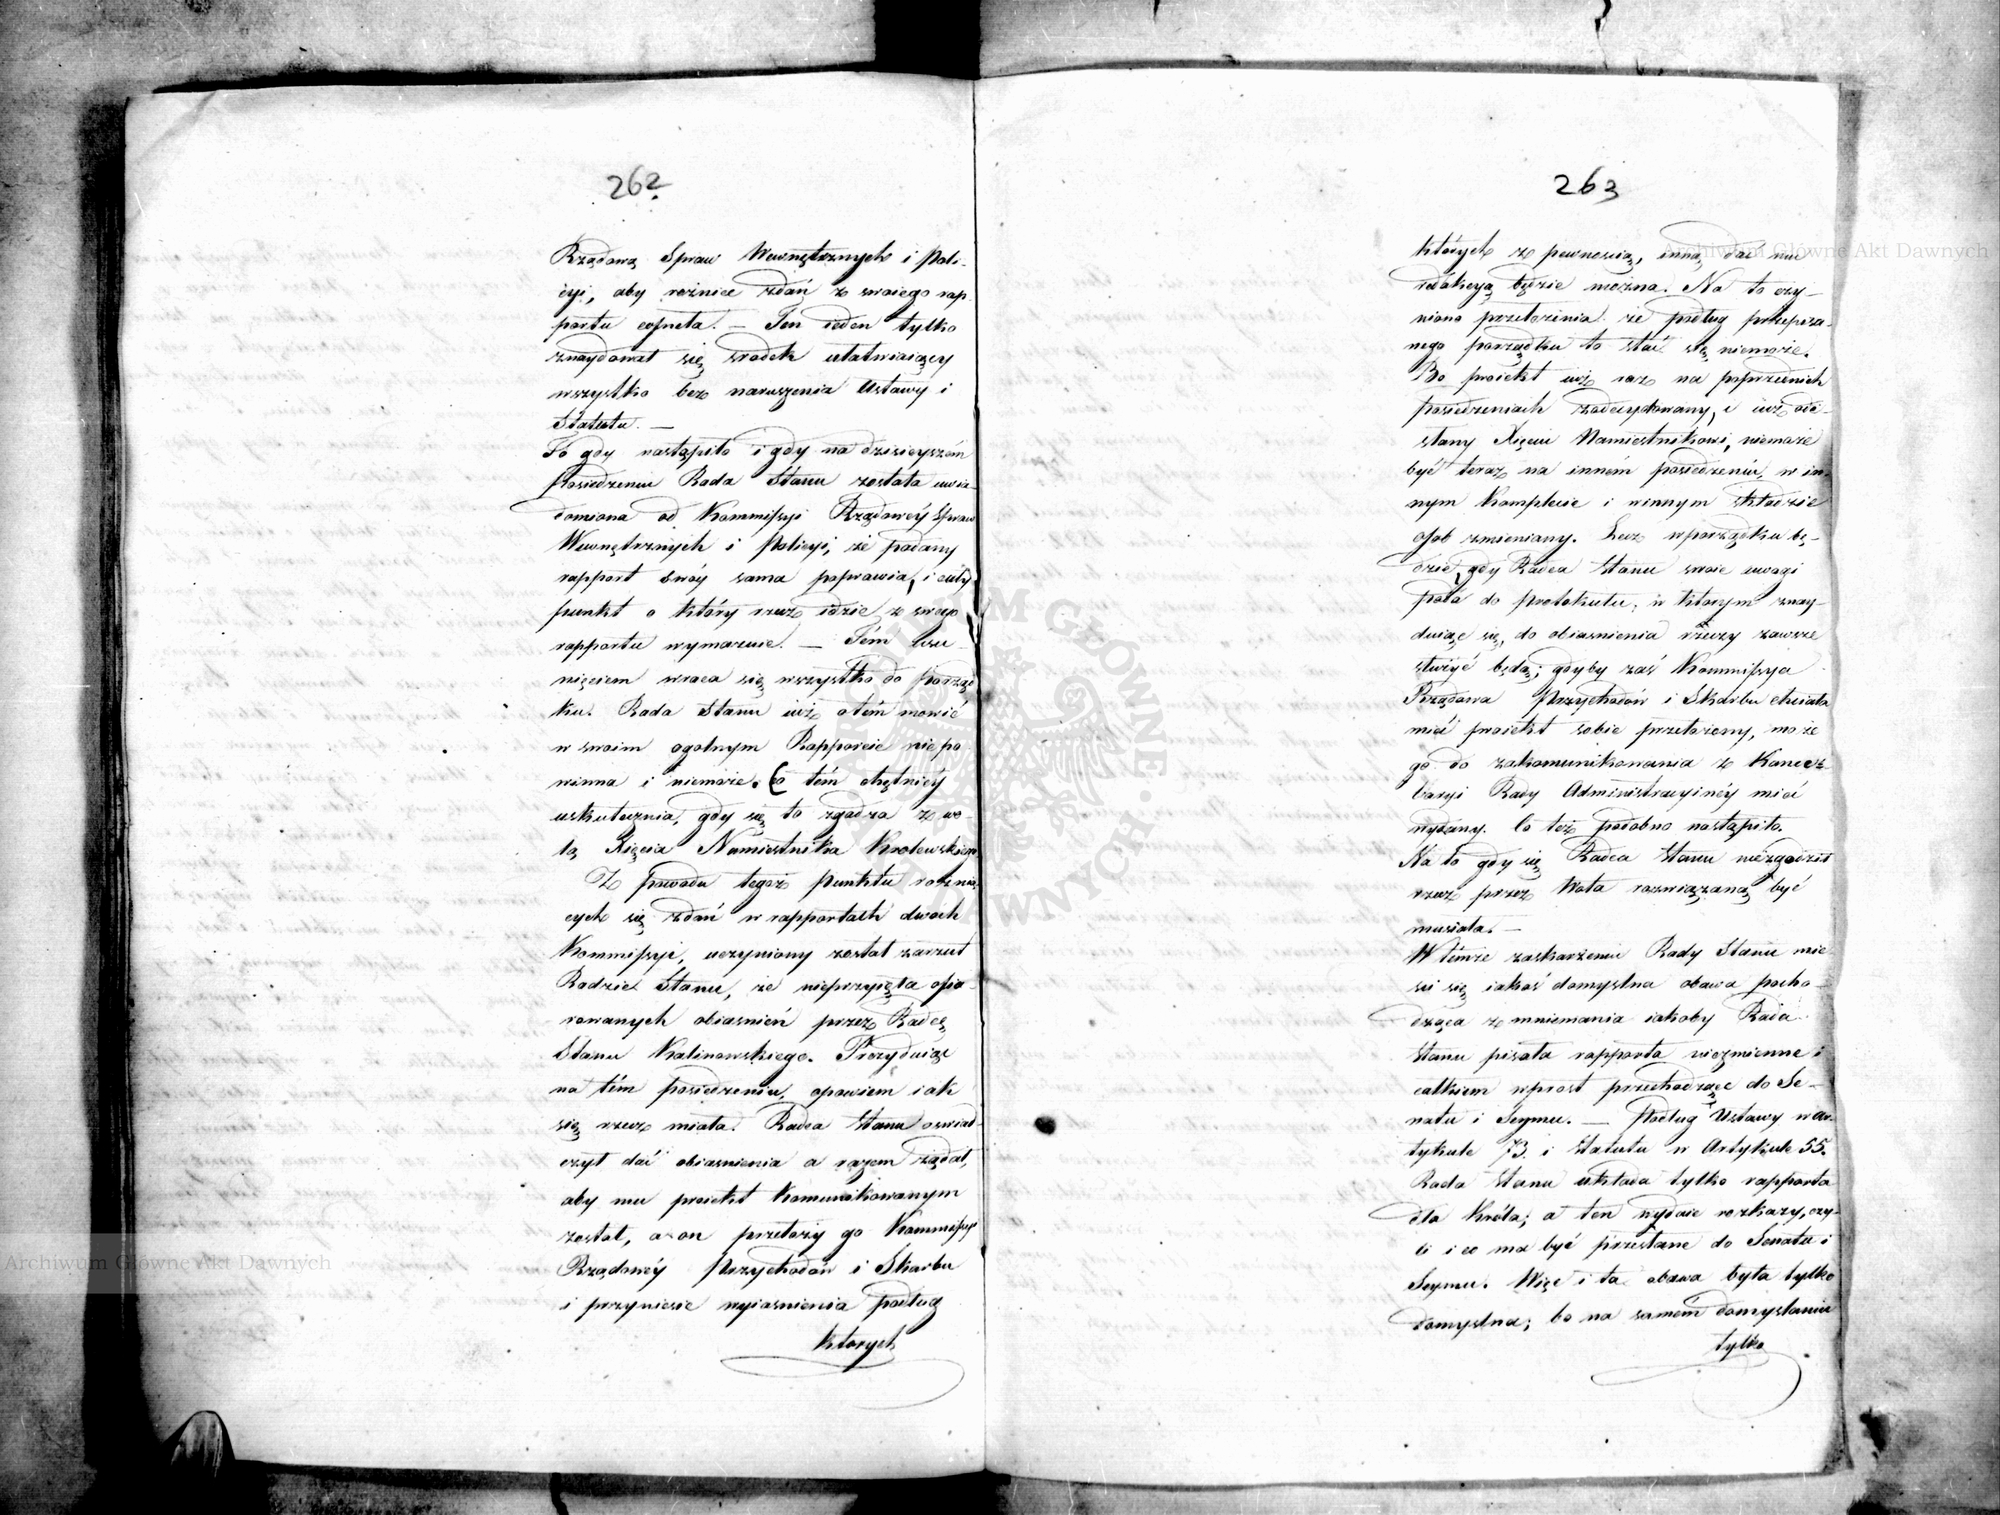 262
Rządową Spraw Wewnętrznych i Poli-
cyi, aby rożnice zdań z swoiego rap-
portu cofnęła. — Ten ieden tylko
znaydował się srodek ułatwiaiący
wszystko bez naruszenia Ustawy i
Statutu. —
To gdy nastąpiło i gdy na dzisieyszém
Posiedzeniu Rada Stanu została uwia-
domiona od Kommissyi Rządowéy Spraw
Wewnętrznych i Policyi, że podany
rapport swóy sama poprawia, i cały
punkt o który rzecz idzie z swego
rapportu wymazuie. — Tém usu-
nięciem wraca się wszystko do porząd-
ku. Rada Stanu iuż o tém mowić
w swoim ogolnym Rapporcie niepo
winna i niemoże. Co tém chętniéy
uskutecznia, gdy się to zgadza z wo-
lą Xięcia Namiestnika Krolewskiego.
Z powodu tegoż punktu rożnią-
cych się zdań w rapportach dwoch
Kommissyi, uczyniony został zarzut
Radzie Stanu, że nieprzyięła ofia-
rowanych obiasnień przez Radcę
Stanu Kalinowskiego. Prezyduiąc
na tém posiedzeniu, opowiem iak
się rzecz miała. Radca Stanu oswiad-
czył dać obiasnienia a razem żądał,
aby mu proiekt kommunikowanym
został, a on przełoży go Kommissyi
Rządowéy Przychodów i Skarbu
i przyniesie wyiasnienia podług
ktorych
263
których z pewnoscią, inną dać mu
redakcyą będzie można. Na to czy-
niono przełożenia że podług przepisa-
nego porządku to stać się niemoże.
Bo proiekt iuż raz na poprzednich
posiedzeniach zadecydowany, i iuż ode-
słany Xięciu Namiestnikowi, niemoże
być teraz na inném posiedzeniu, w in-
nym Komplecie i winnym składzie
osob zmieniany. Lecz wporządku bę-
dzie, gdy Radca Stanu swoie uwagi
poda do protokułu, w ktorym znay-
duiąc się, do obiasnienia rzeczy zawsze
służyć będą; gdyby zaś Kommissya
Rządowa Przychodów i Skarbu chciała
mieć proiekt sobie przełożony, może
go do zakomunikowania z Kancel-
laryi Rady Administracyinéy mieć
wydany. Co też podobno nastąpiło.
Na to gdy się Radca Stanu niezgodził
rzecz przez Wota rozwiązaną być
musiała. —
W témże zaskarżeniu Rady Stanu mie-
sci się iakaś domyslna obawa pocho-
dząca z mniemania iakoby Rada
Stanu pisała rapporta niezmienne i
całkiem wprost przechodzące do Se-
natu i Seymu. — Podług Ustawy w ar-
tykule 73. i Statutu w Artykule 55.
Rada Stanu układa tylko rapporta
dla Króla; a ten wydaie rozkazy, czy-
li i co ma być przesłane do Senatu i
Seymu. Więc i ta obawa była tylko
domyslna; bo na samém domyslaniu
tylko
Archiwum Główne Akt Dawnych
Archiwum Główne Akt Dawnych